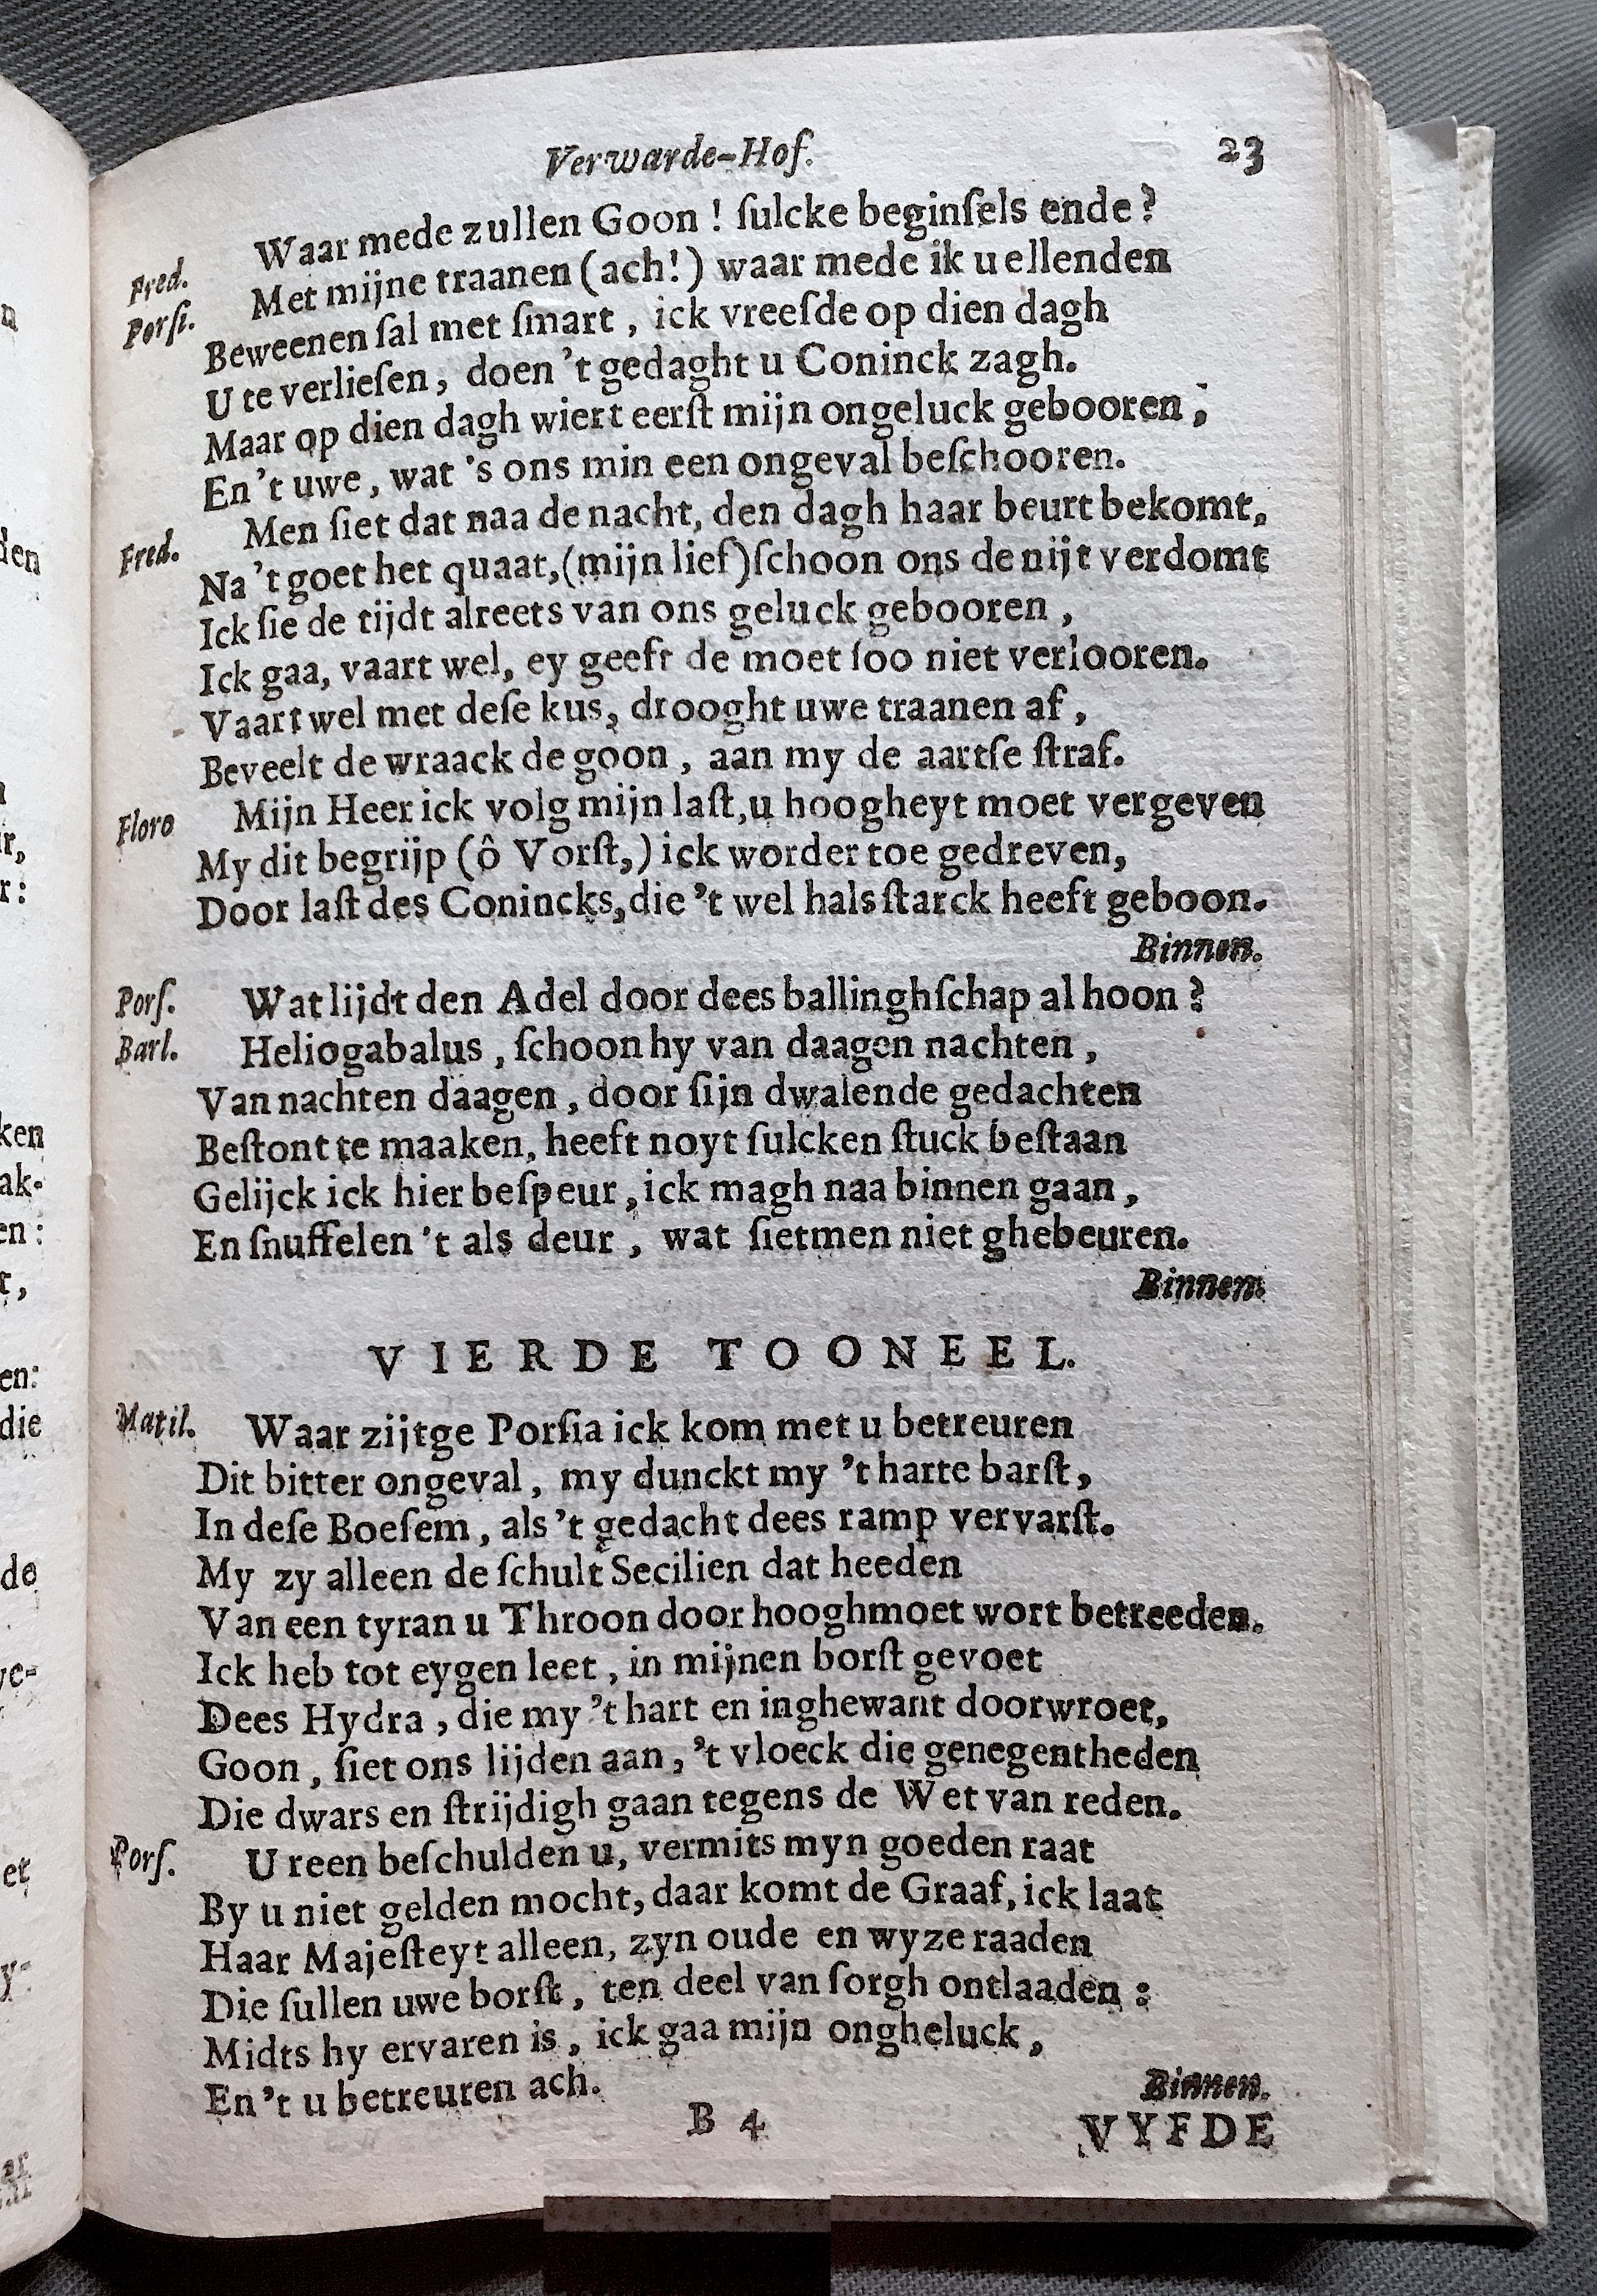 Verwarde-Hof. 23
Waar mede zullen Goon! ſulcke beginſels ende?
Fred. Met mijne traanen (ach!) waar mede ik u ellenden
Porſi. Beweenen ſal met ſmart, ick vreeſde op dien dagh
U te verlieſen, doen 't gedaght u Coninck zagh.
Maar op dien dagh wiert eerſt mijn ongeluck gebooren;
En 't uwe, wat 's ons min een ongeval beſchooren.
Fred. Men ſiet dat naa de nacht, den dagh haar beurt bekomt,
Na 't goet het quaat, (mijn lief) ſchoon ons de nijt verdomt
Ick ſie de tijdt alreets van ons geluck gebooren,
Ick gaa, vaart wel, ey geeft de moet ſoo niet verlooren.
Vaart wel met deſe kus, drooght uwe traanen af,
Beveelt de wraack de goon, aan my de aartſe ſtraf.
Floro Mijn Heer ick volg mijn laſt, u hoogheyt moet vergeven
My dit begrijp (ô Vorſt,) ick worder toe gedreven,
Door laſt des Conincks, die 't wel halsſtarck heeft geboon.
Binnen.
Porſ. Wat lijdt den Adel door dees ballinghſchap al hoon?
Barl. Heliogabalus, ſchoon hy van daagen nachten,
Van nachten daagen, door ſijn dwalende gedachten
Beſtont te maaken, heeft noyt ſulcken ſtuck beſtaan
Gelijck ick hier beſpeur, ick magh naa binnen gaan,
En ſnuffelen 't als deur, wat ſietmen niet ghebeuren.
Binnen.
VIERDE TOONEEL.
Matil. Waar zijtge Porſia ick kom met u betreuren
Dit bitter ongeval, my dunckt my 't harte barſt,
In deſe Boeſem, als 't gedacht dees ramp vervarſt.
My zy alleen de ſchult Secilien dat heeden
Van een tyran u Throon door hooghmoet wort betreeden.
Ick heb tot eygen leet, in mijnen borſt gevoet
Dees Hydra, die my 't hart en inghewant doorwroet,
Goon, ſiet ons lijden aan, 't vloeck die genegentheden
Die dwars en ſtrijdigh gaan tegens de Wet van reden.
Porſ. U reen beſchulden u, vermits myn goeden raat
By u niet gelden mocht, daar komt de Graaf, ick laat
Haar Majeſteyt alleen, zyn oude en wyze raaden
Die ſullen uwe borſt, ten deel van ſorgh ontlaaden:
Midts hy ervaren is, ick gaa mijn ongheluck,
En 't u betreuren ach. Binnen.
B 4 VYFDE